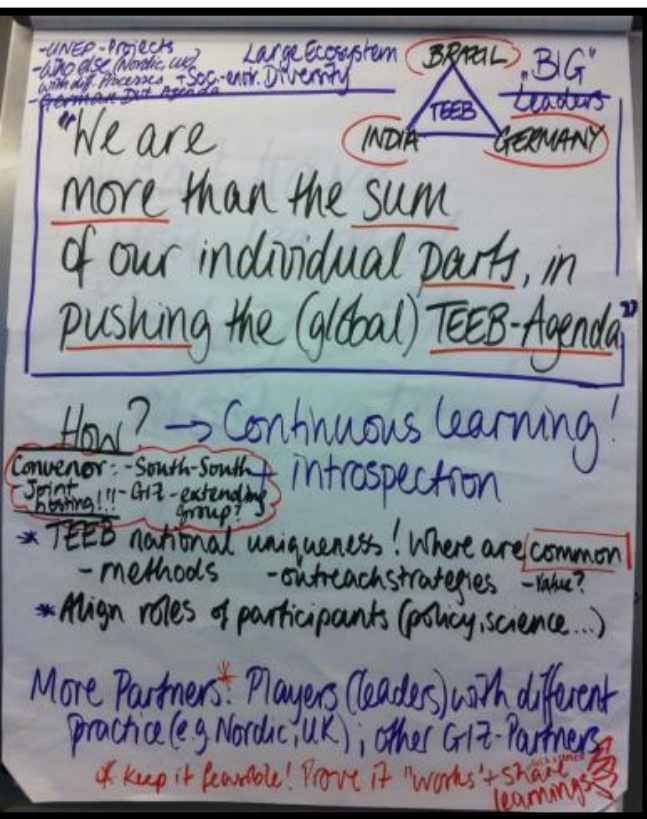 -UNEP-Projects
-Who else (Nordic, UK)
with diff. Processes
-German Dvt Agenda
Large Ecosystem
+ Soc.-envir. Diversity
BRAZIL
TEEB
INDIA
GERMANY
„BIG"
Leaders
"We are
more than the sum
of our individual parts, in
pushing the (global) TEEB-Agenda"
How? → Continuous learning!
+ introspection
Convenor: - South-South
- Joint hosting!!! - GIZ - extending group?
* TEEB national uniqueness! Where are common
- methods - outreachstrategies - value?
* Align roles of participants (policy, science...)
More Partners:* Players (leaders) with different
practice (e.g Nordic, UK) ; other GIZ-Partners
* Keep it feasible! Prove it "works" + share
learnings